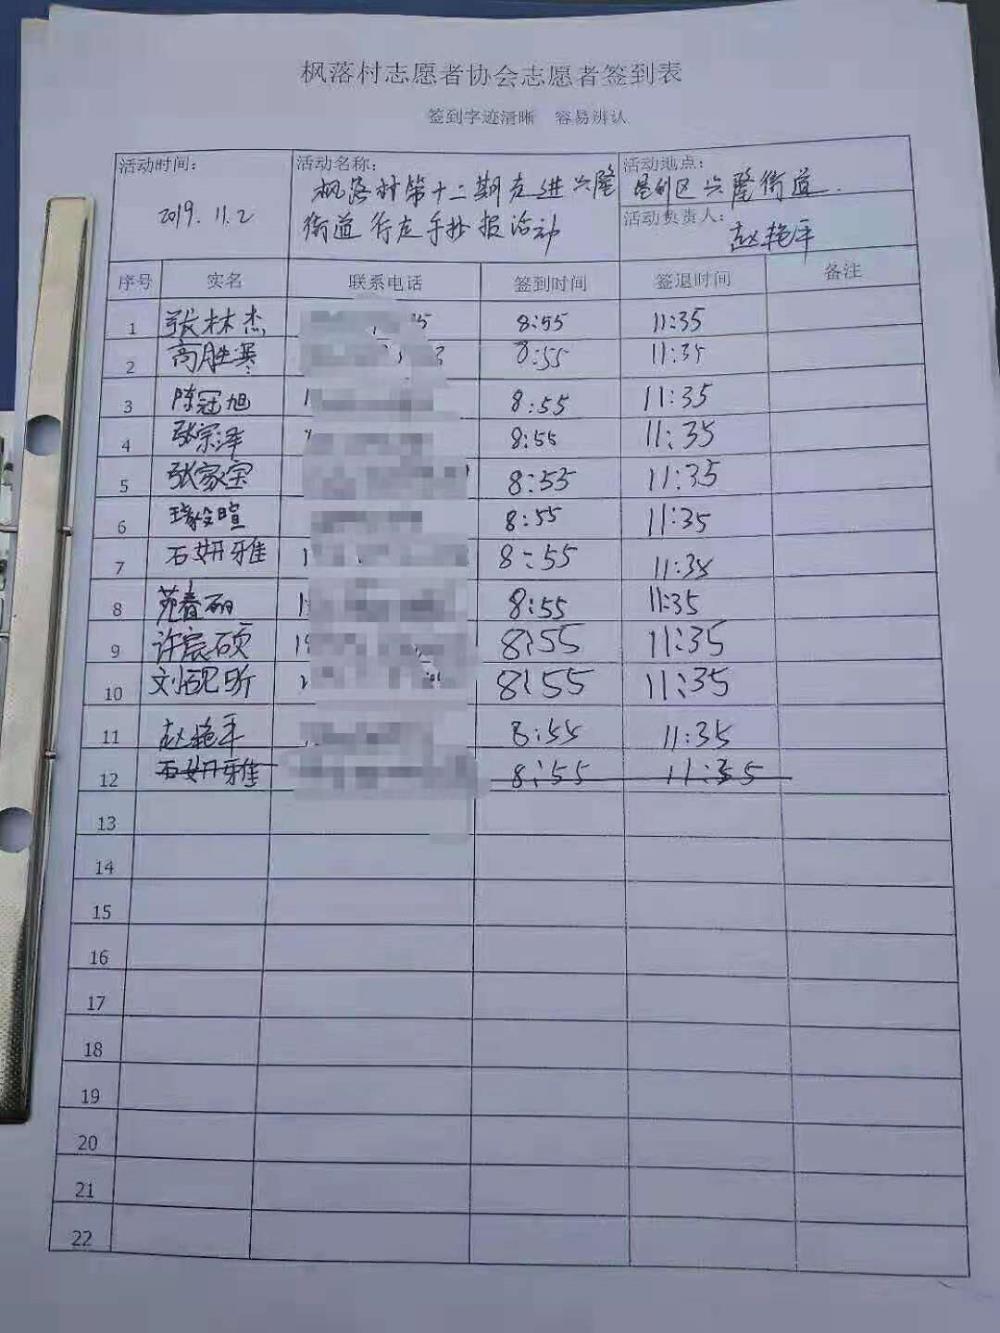 枫落村志愿者协会志愿者签到表
签到字迹清晰 容易辨认
活动时间: 活动名称: 活动地点:
2019.11.2 枫落村第十二期走进兴隆 昆都区兴隆街道.
街道行左手抄报活动 活动负责人:
赵艳平
序号 实名 联系电话 签到时间 签退时间 备注
1 张林杰 8:55 11:35
2 高胜寒 8:55 11:35
3 陈冠旭 8:55 11:35
4 张宗泽 8:55 11:35
5 张家宝 8:55 11:35
6 8:55 11:35
7 石妍雅 8:55 11:35
8 苑春丽 8:55 11:35
9 许宸硕 8:55 11:35
10 刘昕 8:55 11:35
11 赵艳平 8:55 11:35
12 石妍雅 8:55 11:35
13
14
15
16
17
18
19
20
21
22